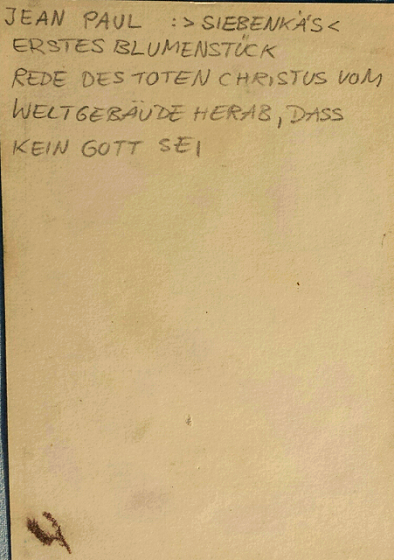 JEAN PAUL :>SIEBENKÄS<
ERSTES BLUMENSTÜCK
REDE DES TOTEN CHRISTUS VOM
WELTGEBÄUDE HERAB, DASS
KEIN GOTT SEI